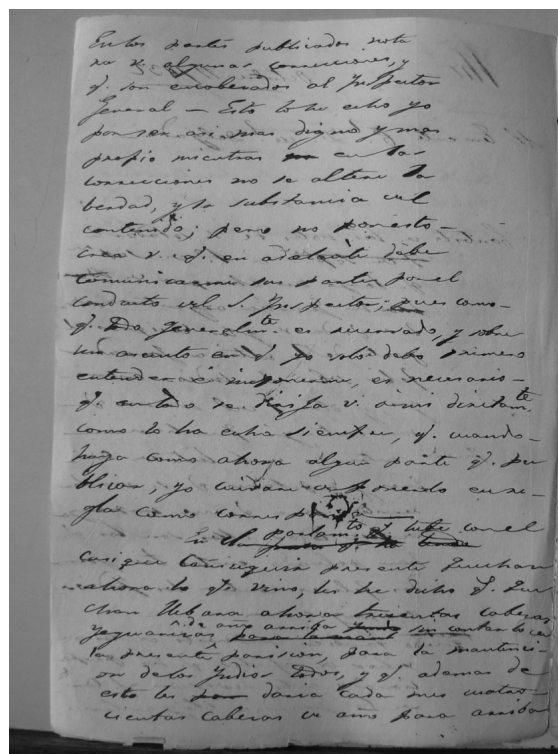 En los partes publicados nota
ra v. algunas correcciones, y
q.e son enroberados al Inspector
General — Esto lo he echo yo
por ser asi mas digno y mas
propio mientras en las
correcciones no se altere la
berdad, y la substancia del
contenido; pero no por esto
crea v. q.e en adelante debe
comunicarme sus partes por el
conducto del S. Inspector; pues como
q.e todo generalm.te es reservado, y sobre
un asunto en q.e yo solo debo primero
entender é imponerme, es necesario
q.e en todo se dirija v. a mi directam.te
como lo ha echo siempre, q.e cuando
haya como ahora algun parte q.e pu
blicar, yo cuidare de ponerlo en re
gla como corresponde
En el parlam.to q.e tube con el
casique Cañiuquir presente Llanchan
ahora lo q.e vino, les he dicho q.e
chan llebara ahora trescientas cabezas
yeguarizas de año arriba sin contar
la presente parision, para la mantenci
on de los Indios todos, y q.e ademas de
esto les daria cada mes cuatro
cientas cabezas de año para arriba